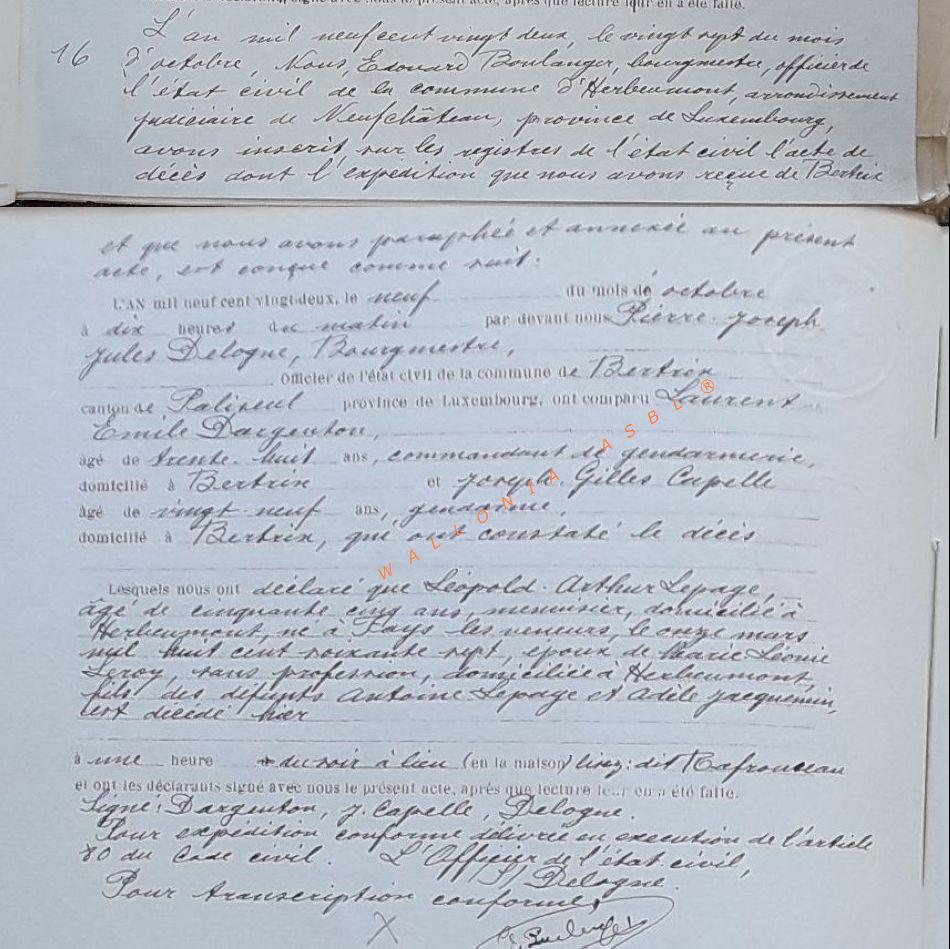 signé avec nous le présent acte, après que lecture leur en a été faite.
16
L'an mil neuf cent vingt deux, le vingt sept du mois
d'octobre, Nous, Edouard Boulanger, bourgmestre, officier de
l'état civil de la commune d'Herbeumont, arrondissement
judiciaire de Neufchâteau, province de Luxembourg,
avons inscrit sur les registres de l'état civil l'acte de
décès dont l'expédition que nous avons reçue de Bertrix
et que nous avons paraphée et annexée au présent
acte, est conçue comme suit:
L'AN mil neuf cent vingt-deux, le neuf du mois de octobre
à dix heures du matin par devant nous Pierre-Joseph
Jules Delogne, Bourgmestre,
Officier de l'état civil de la commune de Bertrix
canton de Paliseul province de Luxembourg, ont comparu Laurent
Emile Dargenton,
âgé de trente-huit ans, commandant de gendarmerie,
domicilié à Bertrix et Joseph-Gilles Capelle
âgé de vingt-neuf ans, gendarme,
domicilié à Bertrix, que ont constaté le décès
Lesquels nous ont déclaré que Léopold-Arthur Lepage,
âgé de cinquante cinq ans, menuisier, domicilié à
Herbeumont, né à Fays les veneurs, le onze mars
mil huit cent soixante sept, époux de Marie Léonie
Leroy, sans profession, domiciliée à Herbeumont,
fils des défunts Antoine Lepage et Adèle Jacquemin,
est décédé hier
à une heure du soir à lieu (en la maison) dit
et ont les déclarants signé avec nous le présent acte, après que lecture leur en a été faite.
Signé: Dargenton, J. Capelle, Delogne.
Pour expédition conforme délivrée en exécution de l'article
80 du Code civil. L'Officier de l'état civil,
S/ Delogne.
Pour transcription conforme,
X
WALLONIA ASBL ®